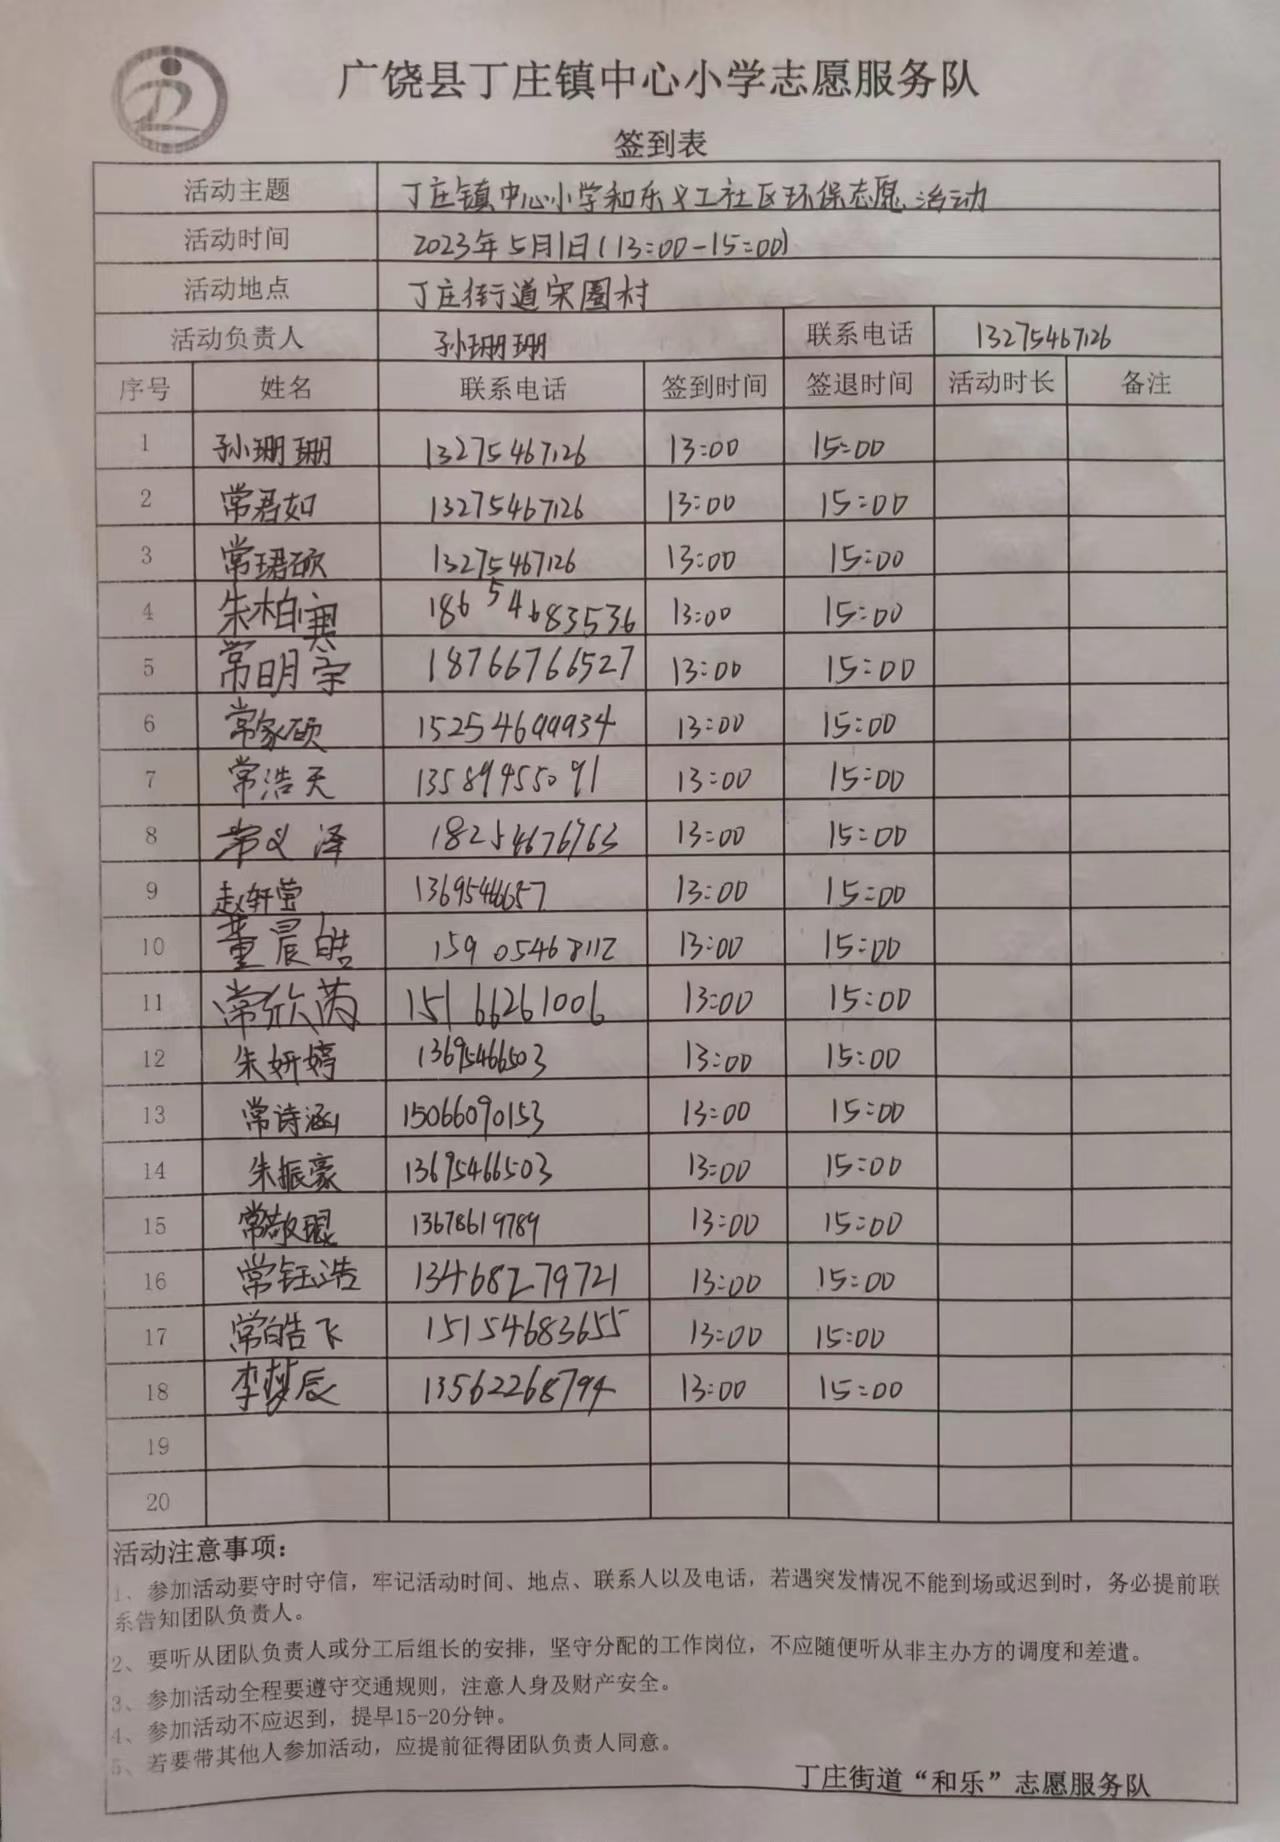 广饶县丁庄镇中心小学志愿服务队
签到表
活动主题 丁庄镇中心小学和乐义工社区环保志愿活动
活动时间 2023年5月1日(13:00-15:00)
活动地点 丁庄街道宋圈村
活动负责人 孙珊珊 联系电话 13275467126
序号 姓名 联系电话 签到时间 签退时间 活动时长 备注
1 孙珊珊 13275467126 13:00 15:00
2 常君如 13275467126 13:00 15:00
3 常珺硕 13275467126 13:00 15:00
4 朱柏寒 18654683536 13:00 15:00
5 常明宗 18766766527 13:00 15:00
6 常家硕 15254699934 13:00 15:00
7 常浩天 13589455091 13:00 15:00
8 常义泽 18254676763 13:00 15:00
9 赵轩萱 13:00 15:00
10 董晨皓 15905468112 13:00 15:00
11 常欣芮 15166261006 13:00 15:00
12 朱妍婷 13695466503 13:00 15:00
13 常诗涵 15066090153 13:00 15:00
14 朱振豪 13695466503 13:00 15:00
15 常敬琨 13678619789 13:00 15:00
16 常钰浩 13468279721 13:00 15:00
17 常皓飞 15154683655 13:00 15:00
18 李梦辰 13562268794 13:00 15:00
19
20
活动注意事项:
1、参加活动要守时守信，牢记活动时间、地点、联系人以及电话，若遇突发情况不能到场或迟到时，务必提前联
系告知团队负责人。
2、要听从团队负责人或分工后组长的安排，坚守分配的工作岗位，不应随便听从非主办方的调度和差遣。
3、参加活动全程要遵守交通规则，注意人身及财产安全。
4、参加活动不应迟到，提早15-20分钟。
5、若要带其他人参加活动，应提前征得团队负责人同意。
丁庄街道“和乐”志愿服务队